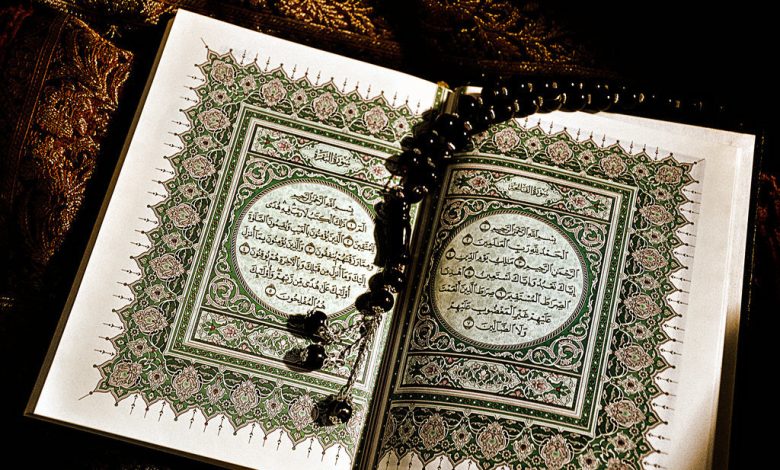 سُورَةُ الْفَاتِحَةِ
بِسْمِ اللَّهِ الرَّحْمَٰنِ الرَّحِيمِ ١
الْحَمْدُ لِلَّهِ رَبِّ الْعَالَمِينَ ٢
الرَّحْمَٰنِ الرَّحِيمِ ٣ مَالِكِ يَوْمِ الدِّينِ ٤
إِيَّاكَ نَعْبُدُ وَإِيَّاكَ نَسْتَعِينُ ٥ اهْدِنَا
الصِّرَاطَ الْمُسْتَقِيمَ ٦ صِرَاطَ الَّذِينَ أَنْعَمْتَ
عَلَيْهِمْ غَيْرِ الْمَغْضُوبِ عَلَيْهِمْ
وَلَا الضَّالِّينَ ٧
سُورَةُ الْبَقَرَةِ
بِسْمِ اللَّهِ الرَّحْمَٰنِ الرَّحِيمِ
الم ١ ذَٰلِكَ الْكِتَابُ لَا رَيْبَ فِيهِ هُدًى
لِلْمُتَّقِينَ ٢ الَّذِينَ يُؤْمِنُونَ بِالْغَيْبِ وَيُقِيمُونَ الصَّلَاةَ
وَمِمَّا رَزَقْنَاهُمْ يُنْفِقُونَ ٣ وَالَّذِينَ يُؤْمِنُونَ بِمَا أُنْزِلَ
إِلَيْكَ وَمَا أُنْزِلَ مِنْ قَبْلِكَ وَبِالْآخِرَةِ هُمْ يُوقِنُونَ ٤
أُولَٰئِكَ عَلَىٰ هُدًى مِنْ رَبِّهِمْ وَأُولَٰئِكَ
هُمُ الْمُفْلِحُونَ ٥